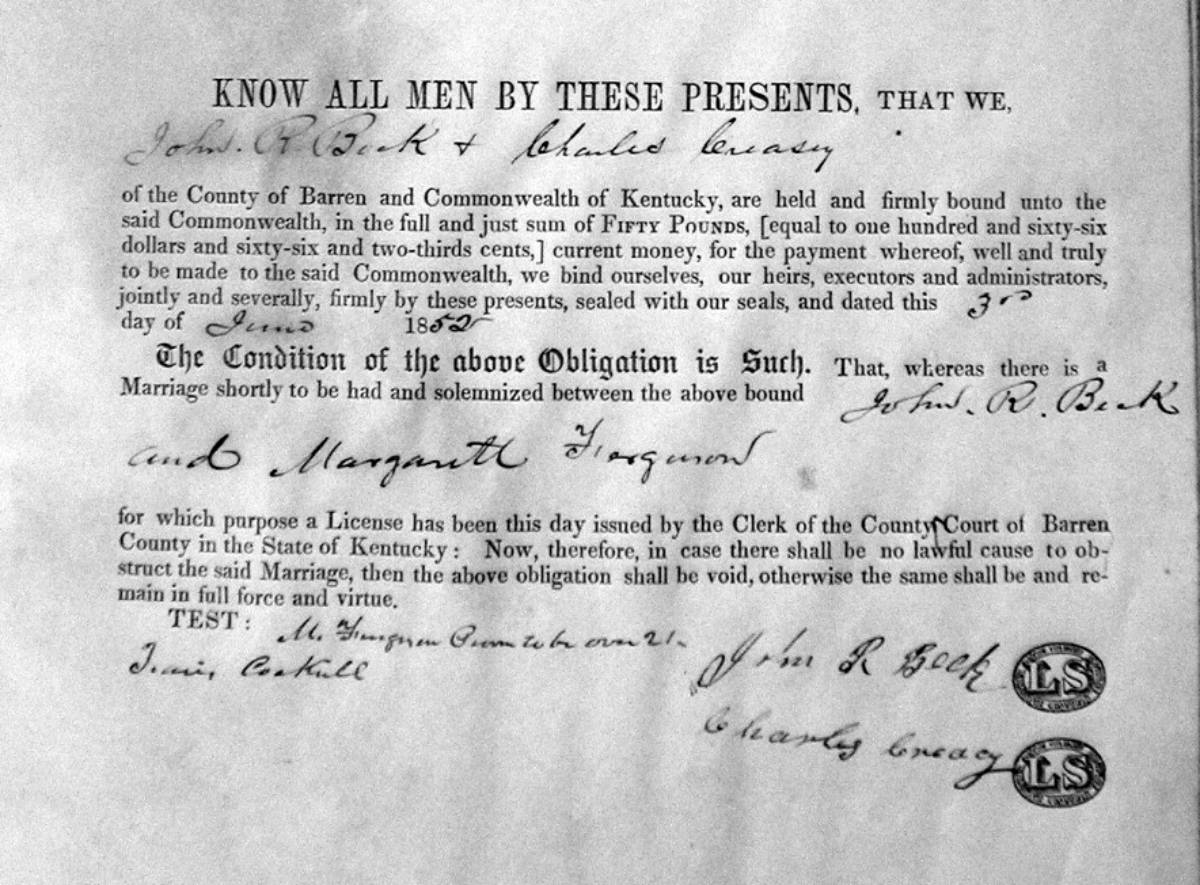 KNOW ALL MEN BY THESE PRESENTS, THAT WE,
John. R. Beck & Charles Creasy
of the County of Barren and Commonwealth of Kentucky, are held and firmly bound unto the
said Commonwealth, in the full and just sum of FIFTY POUNDS, [equal to one hundred and sixty-six
dollars and sixty-six and two-thirds cents,] current money, for the payment whereof, well and truly
to be made to the said Commonwealth, we bind ourselves, our heirs, executors and administrators,
jointly and severally, firmly by these presents, sealed with our seals, and dated this 3rd
day of June 1852
The Condition of the above Obligation is Such. That, whereas there is a
Marriage shortly to be had and solemnized between the above bound John. R. Beck
and Margarett Ferguson
for which purpose a License has been this day issued by the Clerk of the County Court of Barren
County in the State of Kentucky: Now, therefore, in case there shall be no lawful cause to ob-
struct the said Marriage, then the above obligation shall be void, otherwise the same shall be and re-
main in full force and virtue.
TEST: M. Ferguson Proven to be over 21.
John R Beck LS
Charles Creacy LS